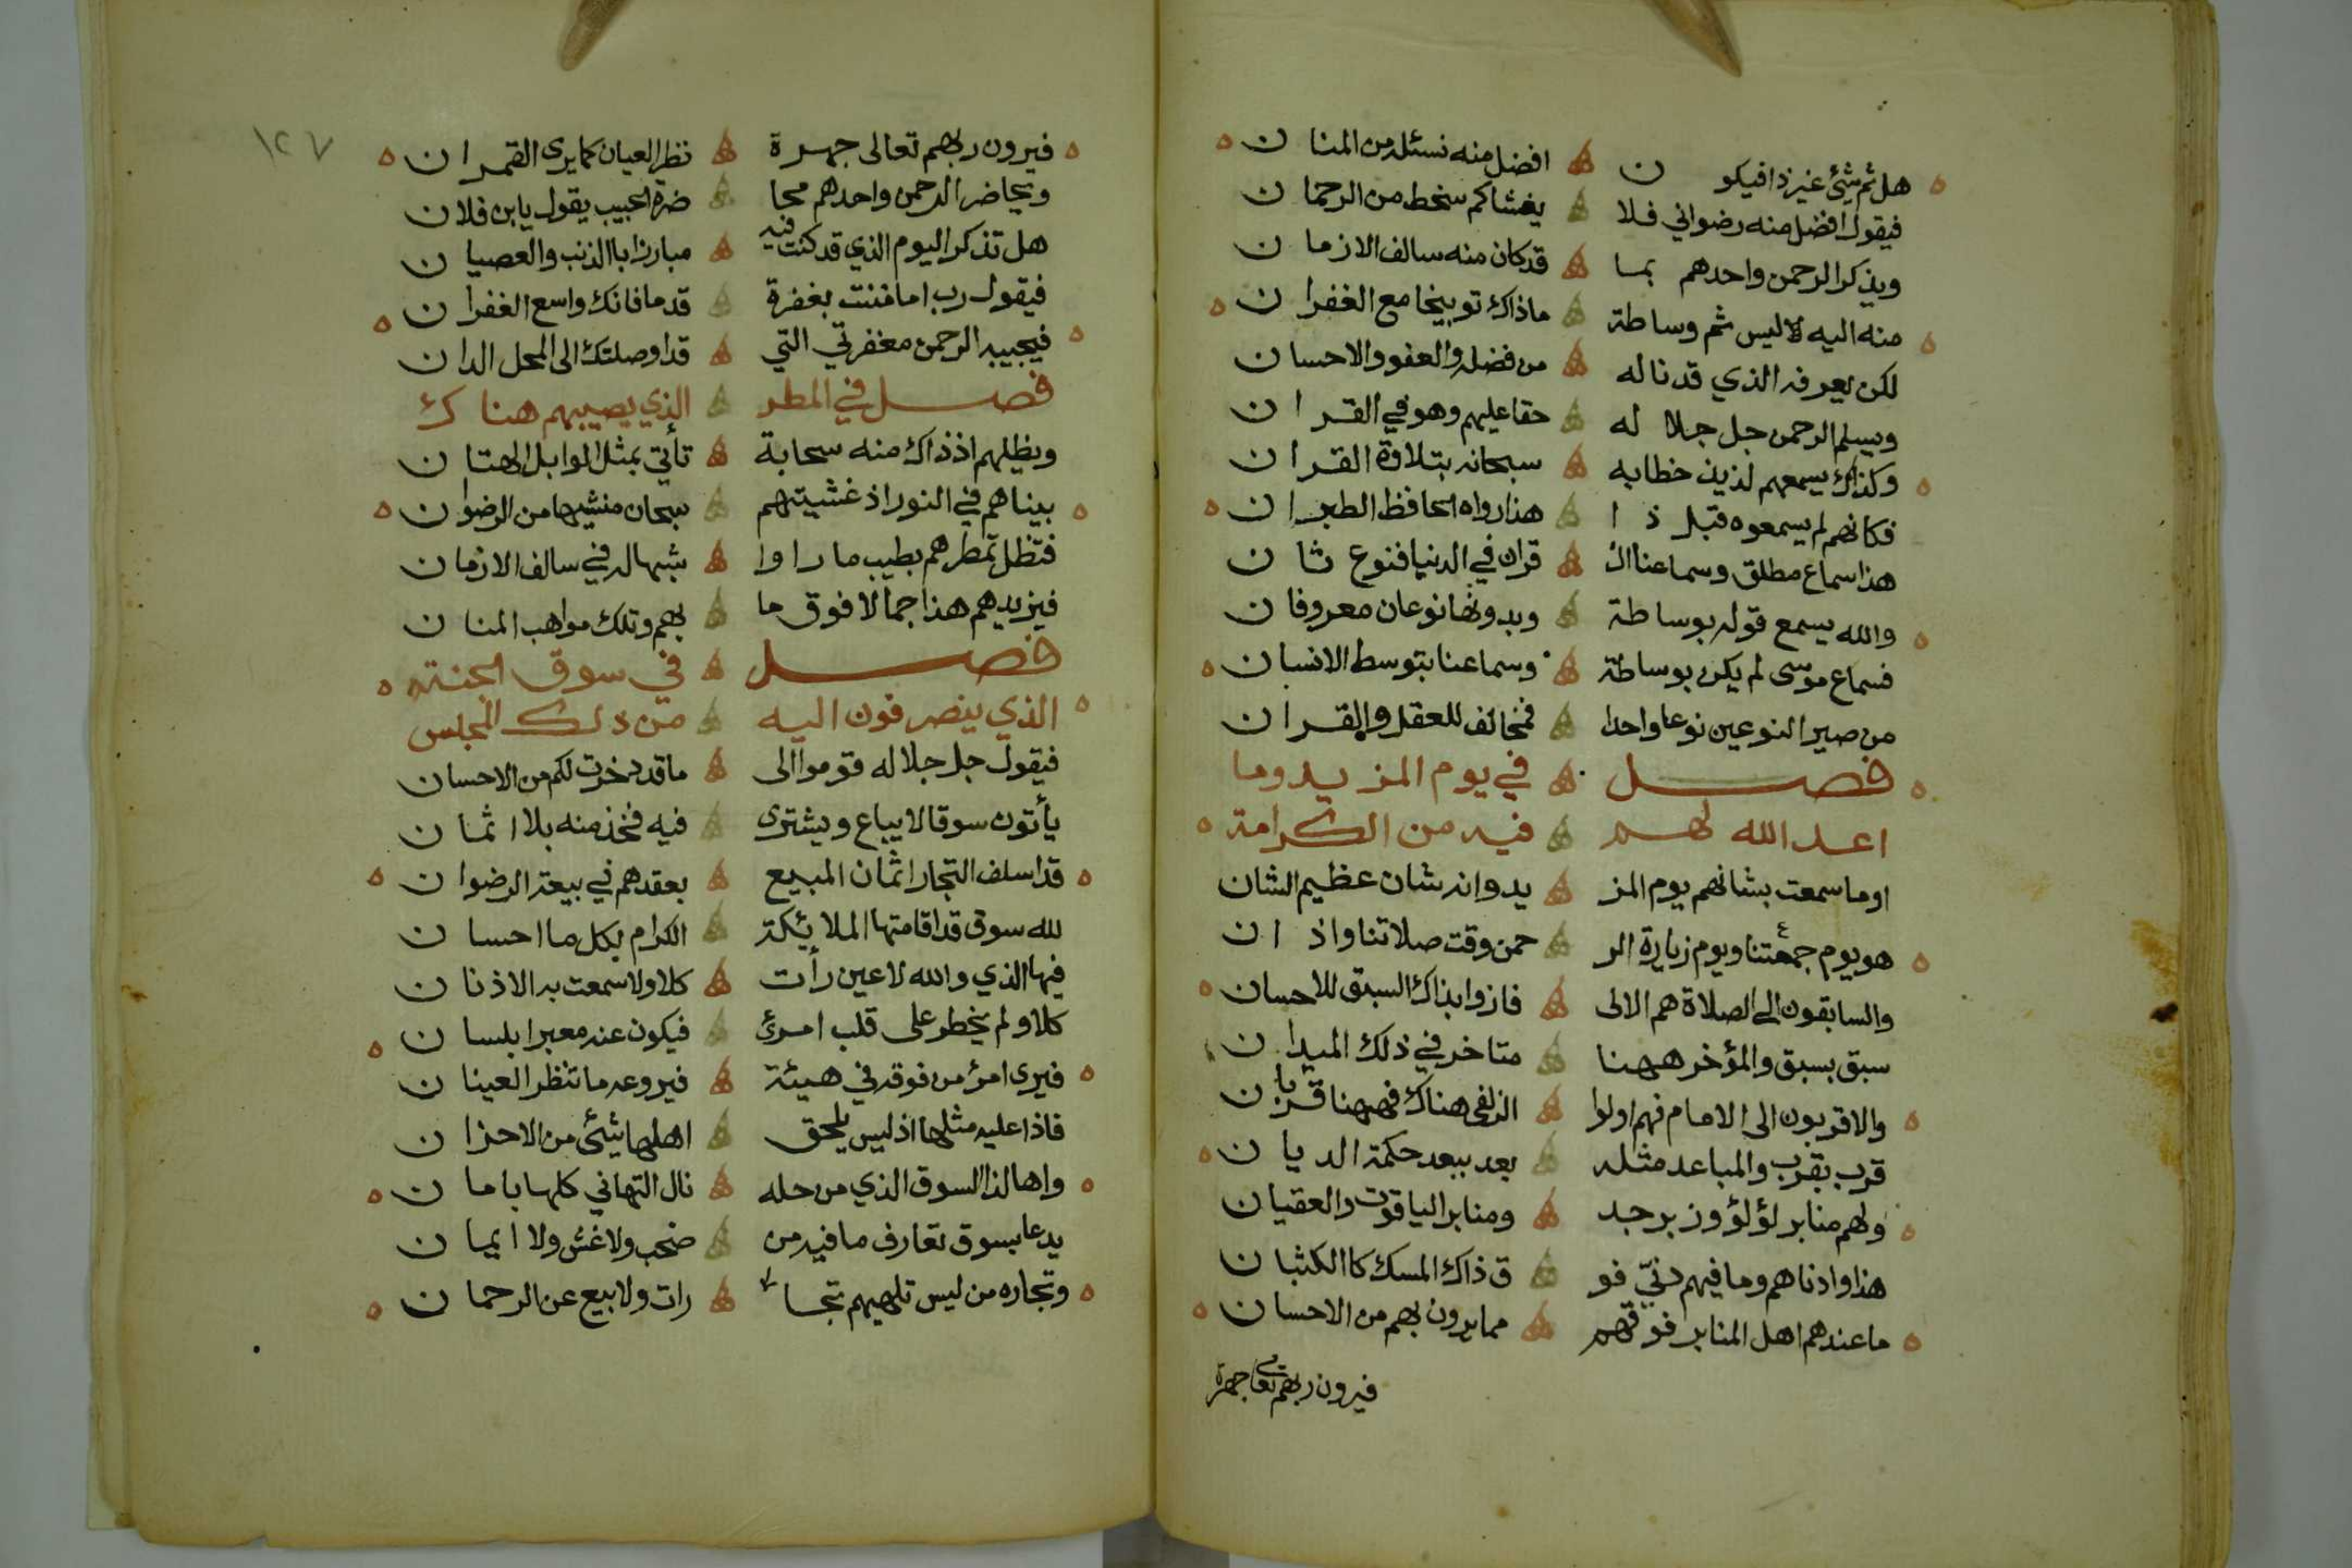 هل ثم شئ غير ذا فيكو ن افضل منه نسئله من المنا ن
فيقول افضل منه رضواني فلا يغشاكم سخط من الرحما ن
ويذكر الرحمن واحدهم بما قد كان منه سالف الازما ن
منه اليه لا ليس ثم وساطة ماذاك توبيخا مع الغفرا ن
لكن يعرفه الذي قد ناله من فضله والعفو والاحسا ن
ويسلم الرحمن جل جلا له حقا عليهم وهو في القر ا ن
وكذاك يسمعهم لذيذ خطابه سبحانه بتلاوة القرا ن
فكانهم لم يسمعوه قبل ذ ا هذا رواه الحافظ الطبرا ن
هذا سماع مطلق وسماعنا ال قران في الدنيا فنوع ثا ن
والله يسمع قوله بوساطة وبدونها نوعان معروفا ن
فسماع موسى لم يكن بوساطة وسماعنا بتوسط الانسا ن
من صير النوعين نوعا واحدا فمخالف للعقل والقرا ن
فصل في يوم المزيد وما
اعد الله لهم فيه من الكرامة
او ما سمعت بشانهم يوم المز يد وانه شان عظيم الشان
هو يوم جمعتنا ويوم زيارة الر حمن وقت صلاتنا واذ ا ن
والسابقون الى الصلاة هم الالى فازوا بذاك السبق للاحسان
سبق بسبق والمؤخر ههنا متاخر في ذلك الميدا ن
والاقربون الى الامام فهم اولوا الزلفى هناك فههنا قربا ن
قرب بقرب والمباعد مثله بعد ببعد حكمة الديا ن
ولهم منابر لؤلؤ وزبرجد ومنابر الياقوت والعقيا ن
هذا وادناهم وما فيهم دنيّ فو ق ذاك المسك كاالكثبا ن
ما عندهم اهل المنابر فوقهم مما يرون بهم من الاحسا ن
فيرون ربهم تعالى جهرة
١٢٧
فيرون ربهم تعالى جهرة نظر العيان كما يرى القمرا ن
ويحاضر الرحمن واحدهم محا ضرة الحبيب يقول يا بن فلا ن
هل تذكر اليوم الذي قد كنت فيه مبارزا باالذنب والعصيا ن
فيقول رب اما مننت بغفرة قدما فانك واسع الغفرا ن
فيجيبه الرحمن مغفرتي التي قد اوصلتك الى المحل الدا ن
فصل في المطر الذي يصيبهم هناك
ويظلهم اذ ذاك منه سحابة تأتي بمثل الوابل الهتا ن
بيناهم في النور اذ غشيتهم سبحان منشيها من الرضوا ن
فتظل تمطرهم بطيب ما را وا شبها له في سالف الازما ن
فيزيدهم هذا جمالا فوق ما بهم وتلك مواهب المنا ن
فصل في سوق الجنة
الذي ينصرفون اليه من ذلك المجلس
فيقول جل جلاله قوموا الى ما قد ذخرت لكم من الاحسان
يأتون سوقا لا يباع ويشترى فيه فخذ منه بلا اثما ن
قد اسلف التجار اثمان المبيع بعقدهم في بيعة الرضوا ن
لله سوق قد اقامتها الملائكة الكرام بكل ما احسا ن
فيها الذي والله لا عين رأت كلا ولا سمعت به الاذنا ن
كلا ولم يخطر على قلب امرئ فيكون عنه معبرا بلسا ن
فيرى امرؤ من فوقه في هيئة فيروعه ما تنظر العينا ن
فاذا عليه مثلها اذ ليس يلحق اهلها شئ من الاحزا ن
واها لذا السوق الذي من حله نال التهاني كلها باما ن
يدعا بسوق تعارف ما فيه من صخب ولا غش ولا ايما ن
وتجاره من ليس تلهيهم تجا رات ولا بيع عن الرحما ن